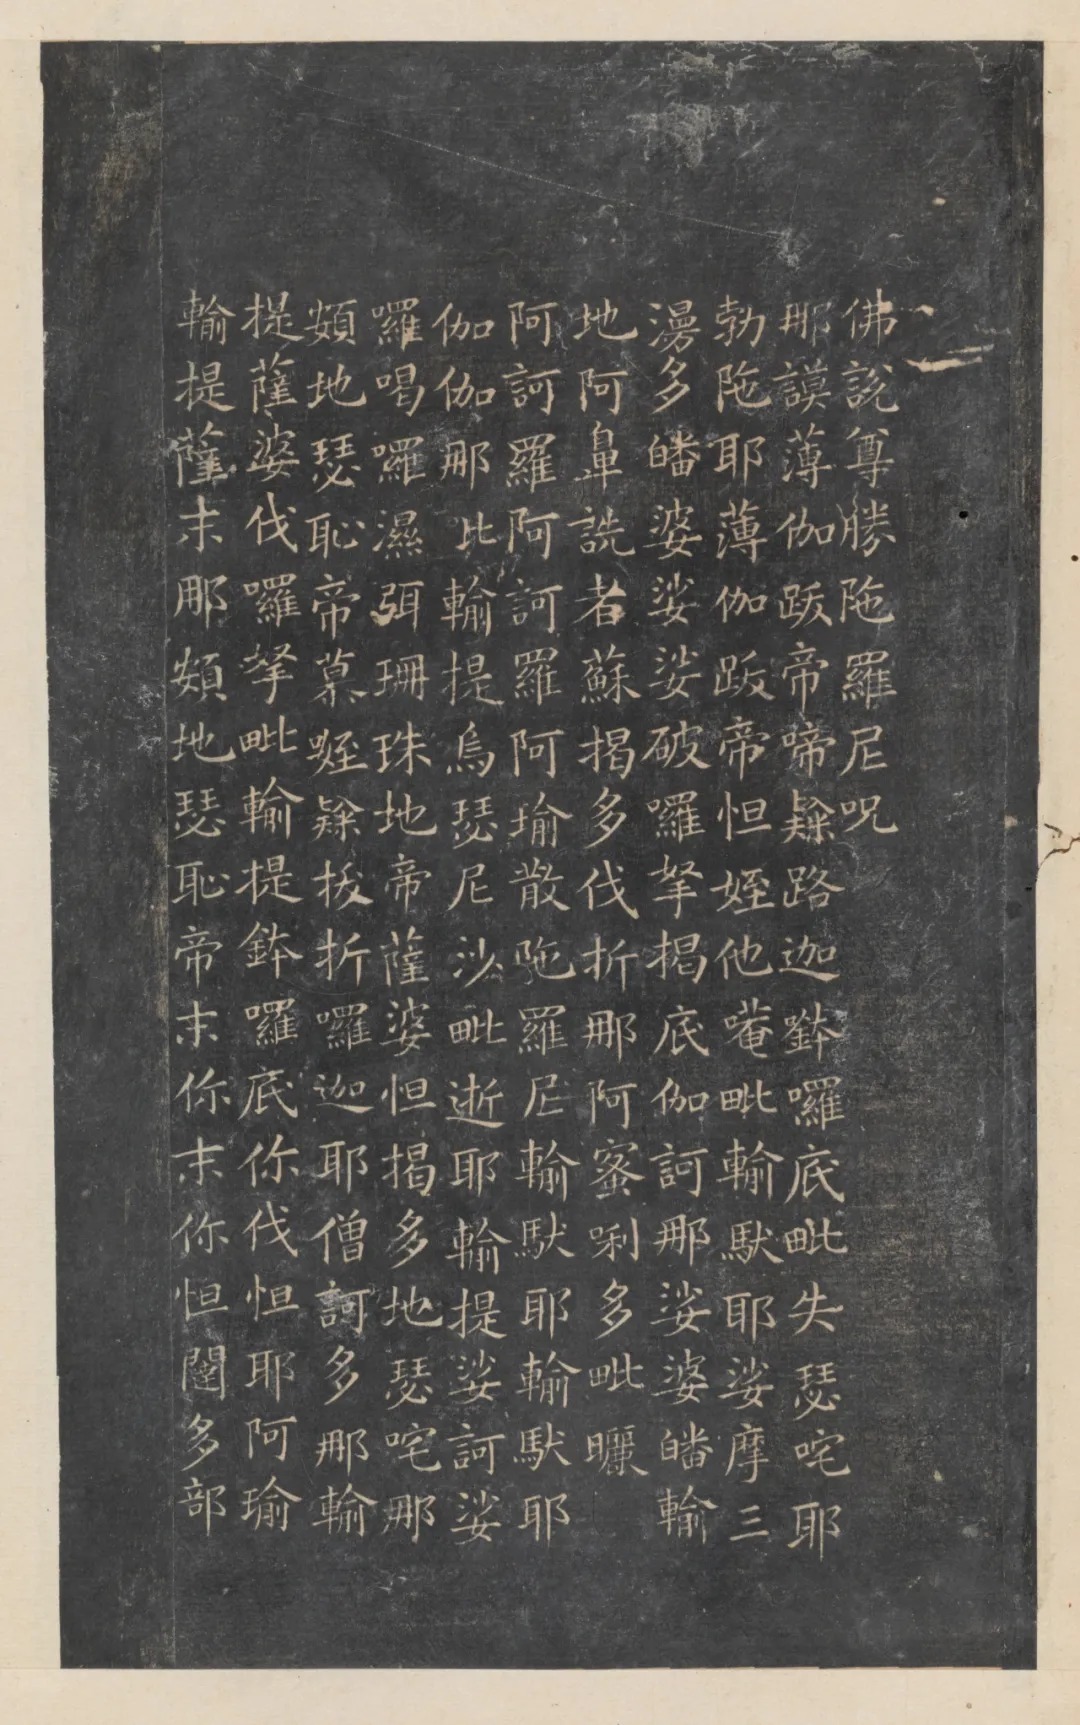 佛說尊勝陁羅尼呪
那謨薄伽跋帝啼隸路迦鉢囉底毗失瑟咤耶
勃陁耶薄伽跋帝怛姪他唵毗輸馱耶娑摩三
漫多皤婆娑娑破羅拏揭底伽訶那娑婆皤輸
地阿鼻詵者蘇揭多伐折那阿蜜唎多毗曬
阿訶羅阿訶羅阿瑜散陁羅尼輸馱耶輸馱耶
伽伽那比輸提烏瑟尼沙毗逝耶輸提娑訶娑
囉喝囉濕弭珊珠地帝薩婆怛揭多地瑟咤那
頞地瑟恥帝慕姪隸拔折囉迦耶僧訶多那輸
提薩婆伐囉拏毗輸提鉢囉底你伐怛耶阿瑜
輸提薩末那頞地瑟恥帝末你末你怛闥多部